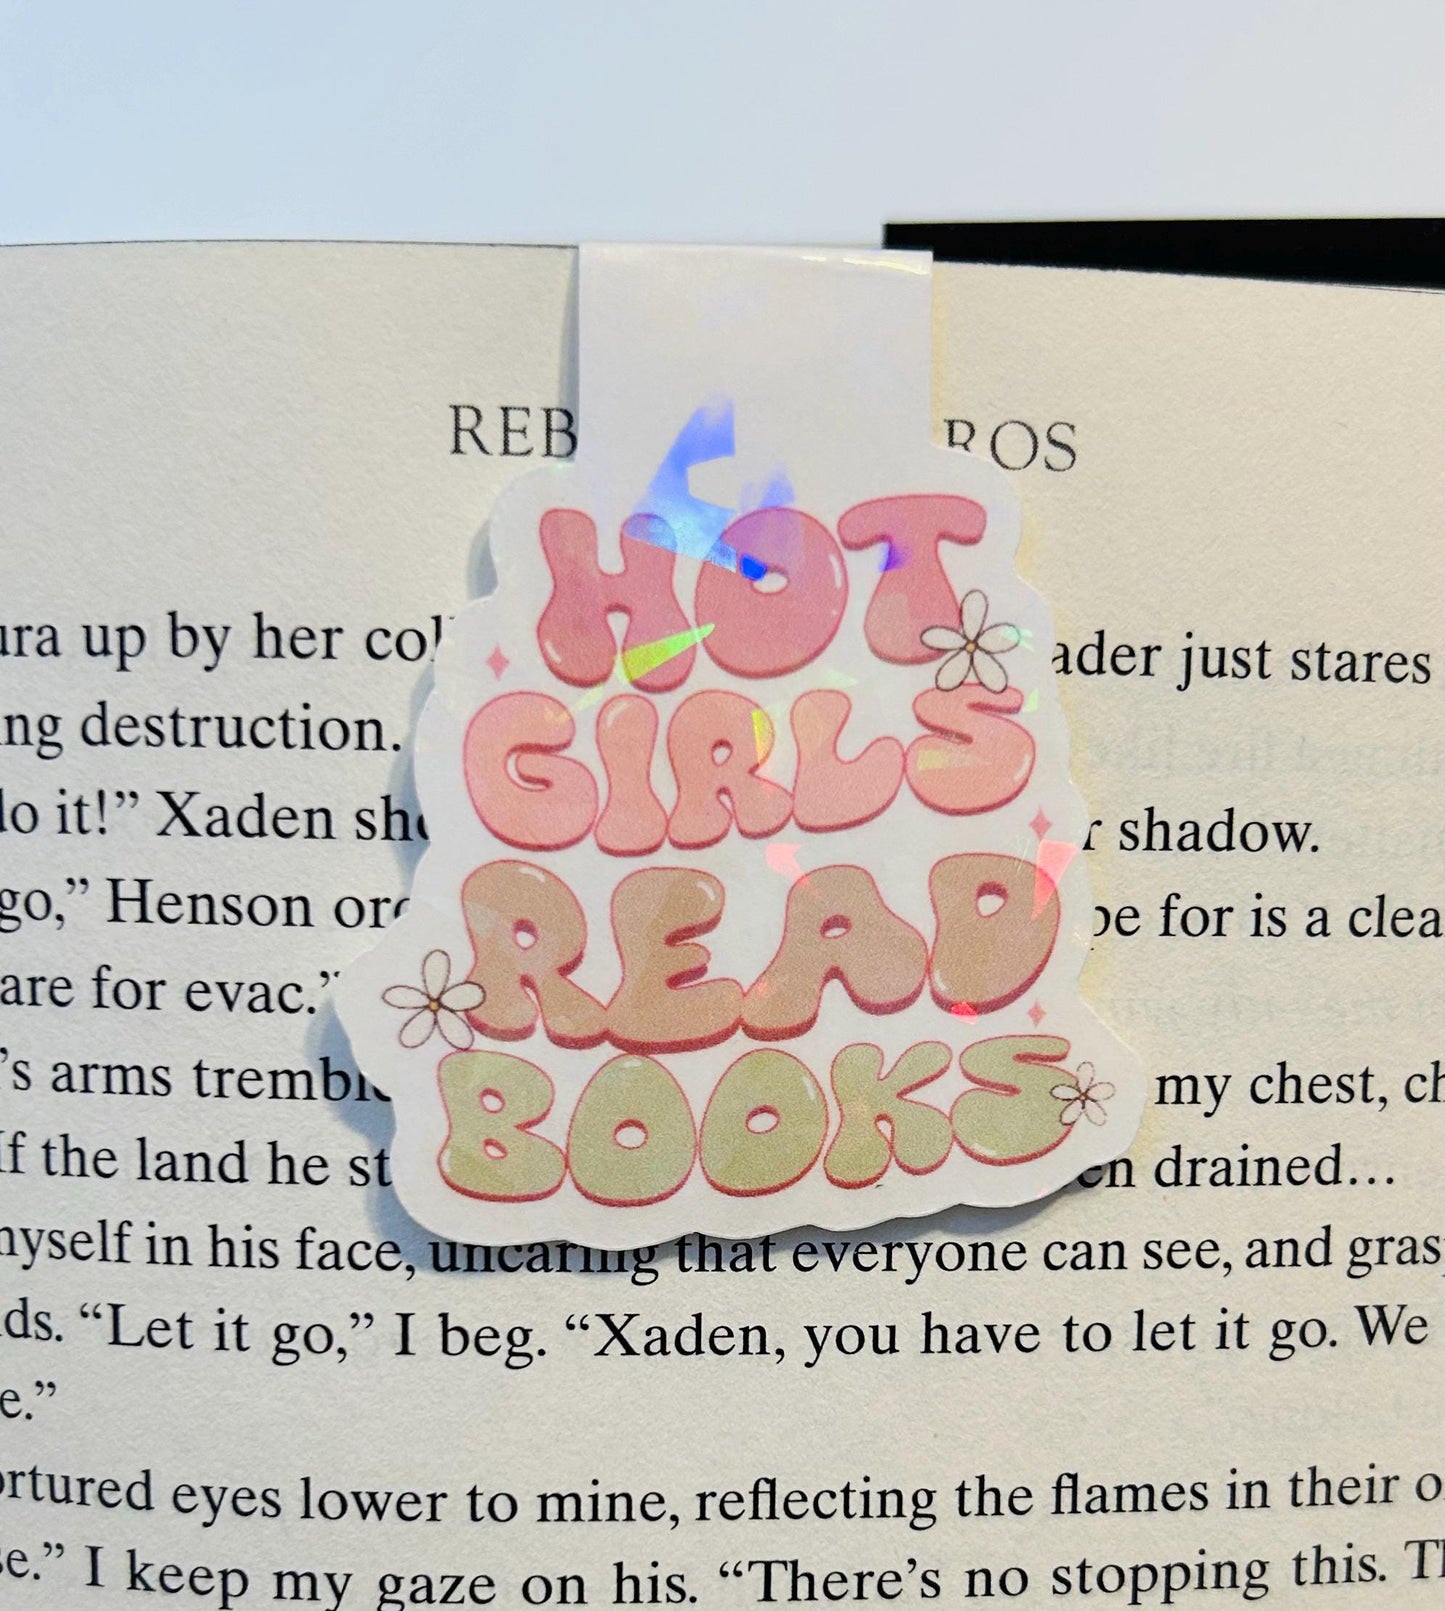 REB ROS
HOT
GIRLS
READ
BOOKS
ura up by her col ader just stares
ing destruction.
do it!” Xaden sh r shadow.
go,” Henson or be for is a clea
are for evac.”
’s arms trembl my chest, ch
If the land he st en drained…
myself in his face, uncaring that everyone can see, and gras
ds. “Let it go,” I beg. “Xaden, you have to let it go. We
e.”
ortured eyes lower to mine, reflecting the flames in their o
se.” I keep my gaze on his. “There’s no stopping this. Th